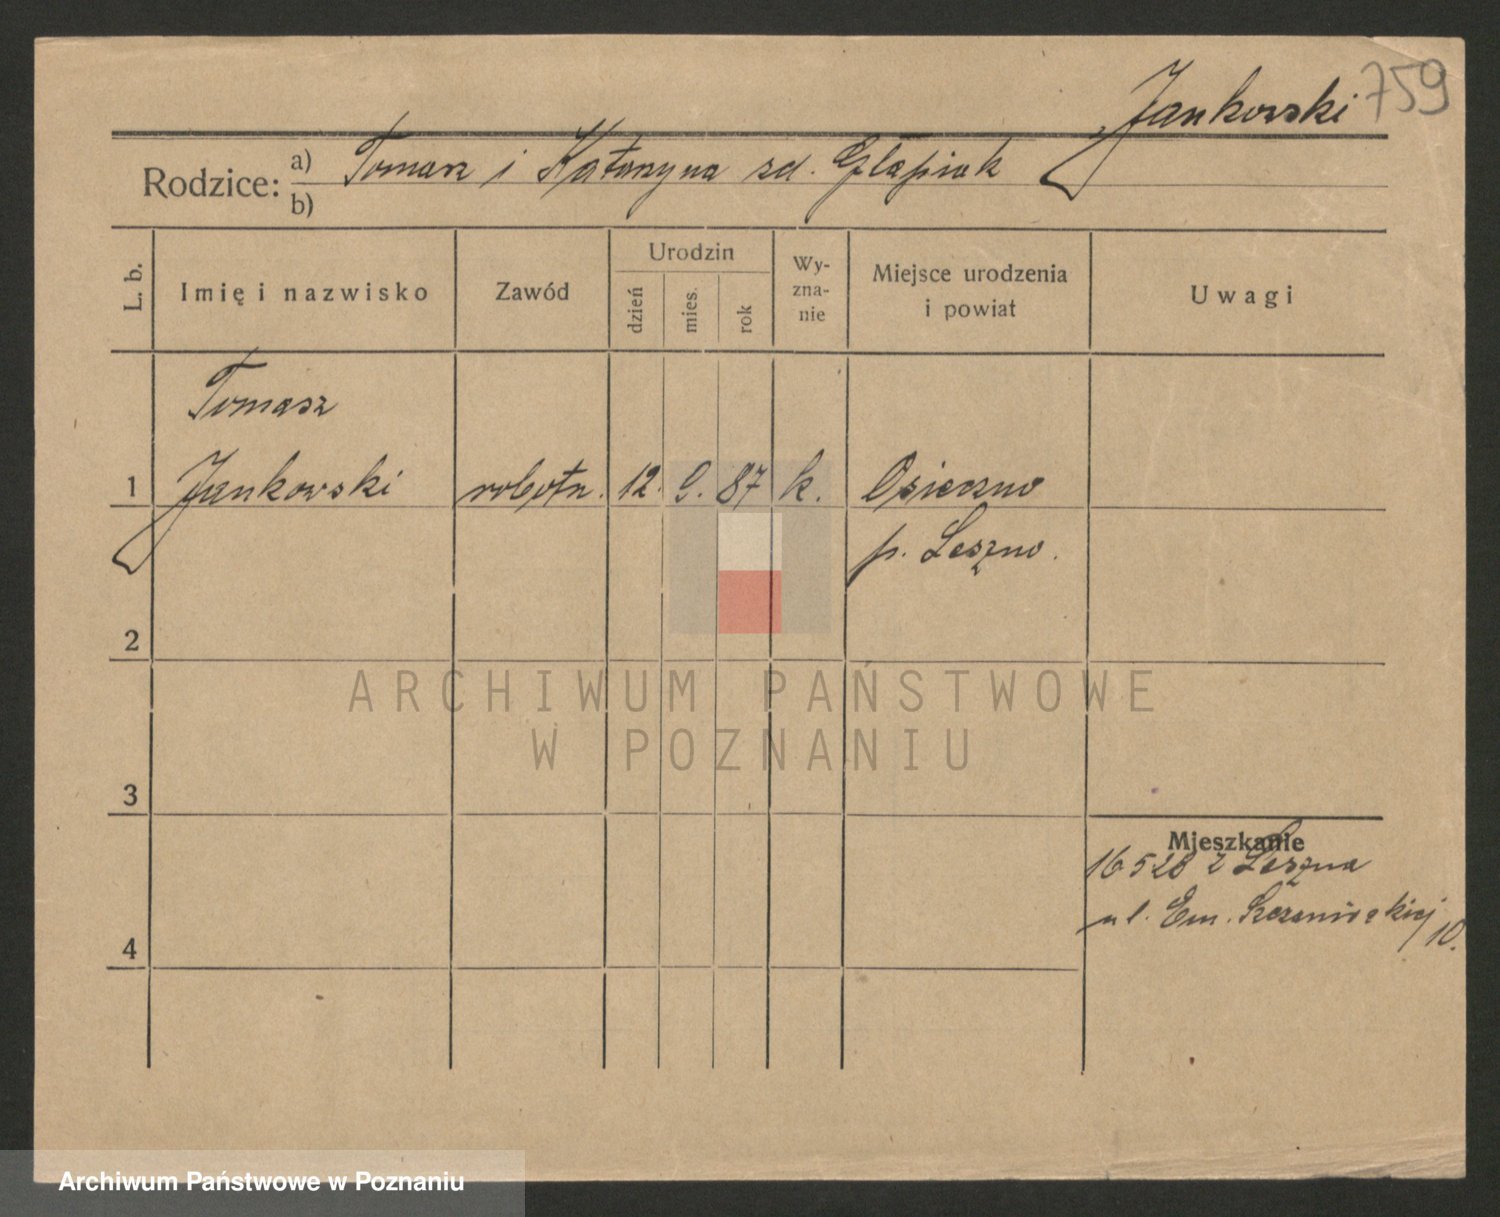 759
Jankowski
Rodzice: a) Tomasz i Katarzyna zd. Glapiak
b)
L. b.
Imię i nazwisko
Zawód
Urodzin
dzień
mies.
rok
Wy-
zna-
nie
Miejsce urodzenia
i powiat
Uwagi
Tomasz
1 Jankowski robotn. 12. 9. 87 k. Osieczno
p. Leszno.
2
ARCHIWUM PAŃSTWOWE
W POZNANIU
3
Mieszkanie
16528 z Leszna
ul. Em. Sczanieckiej 10.
4
Archiwum Państwowe w Poznaniu